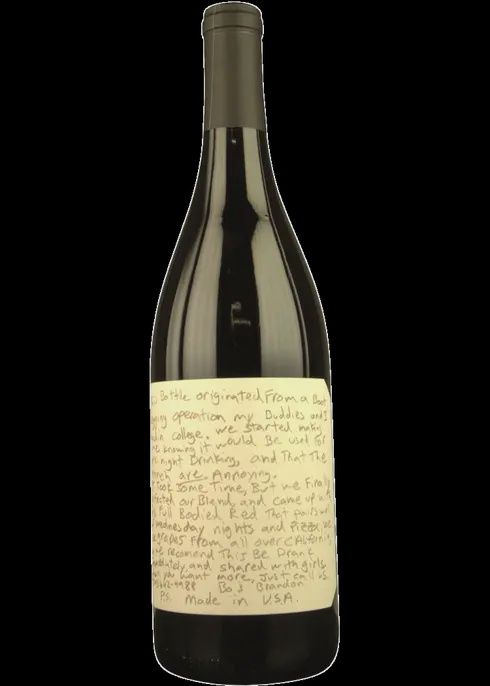 Bottle originated From a Boot
operation my Buddies and I
college. we started making
knowing it would Be used For
night Drinking, and That The
are Annoying.
Took Some Time, But we Finally
our Blend, and came up w
Full Bodied Red That pairs w
wednesday nights and Pizza, we
grapes From all over California
we recomend This Be Drank
and shared with girls
you want more, Just call us.
Bo & Brandon
P.S. Made in U.S.A.